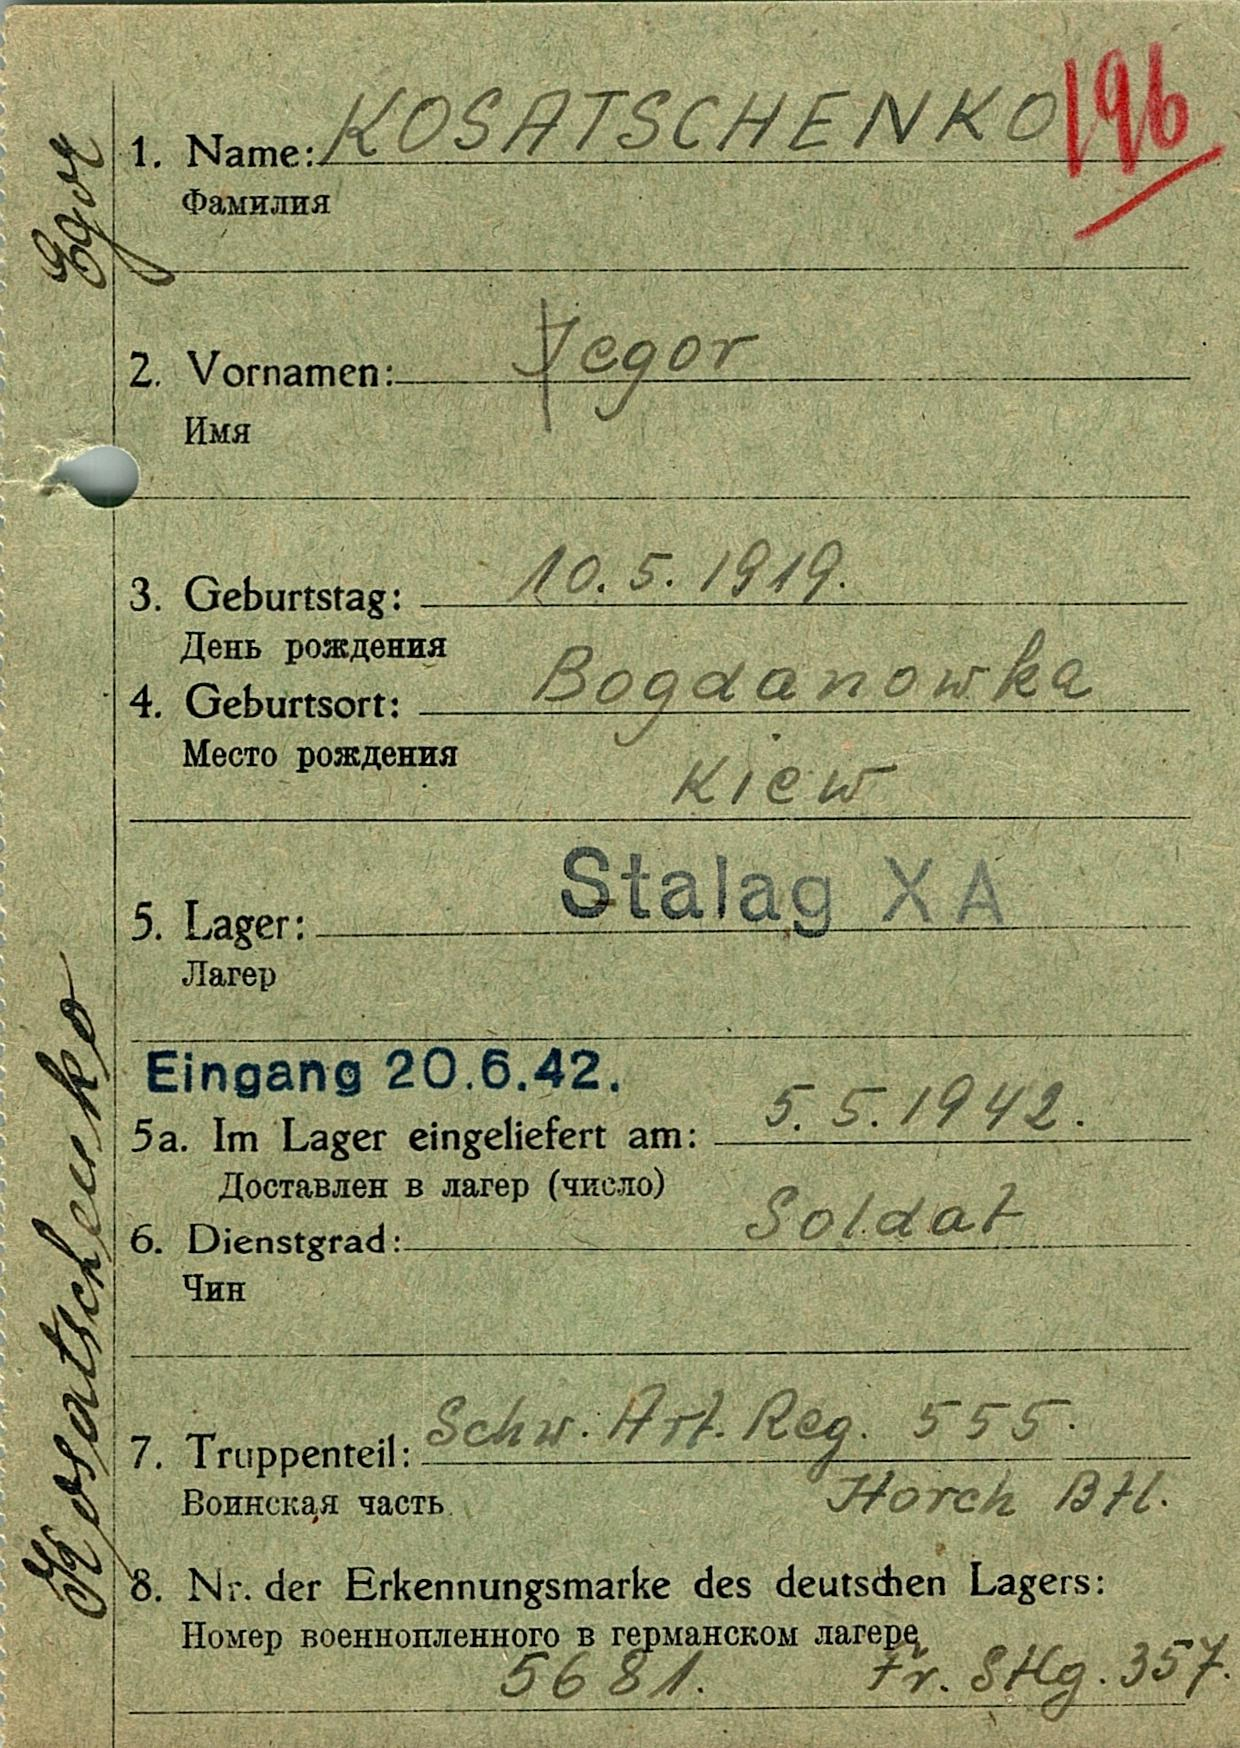 196
1. Name: KOSATSCHENKO
Фамилия
Egor
2. Vornamen: Jegor
Имя
3. Geburtstag: 10. 5. 1919.
День рождения
4. Geburtsort: Bogdanowka
Место рождения
Kiew
5. Lager: Stalag X A
Лагер
Eingang 20.6.42.
5a. Im Lager eingeliefert am: 5. 5. 1942.
Доставлен в лагер (число)
6. Dienstgrad: Soldat
Чин
Kosatschenko
7. Truppenteil: Schw. Art. Reg. 555.
Воинская часть Horch Btl.
8. Nr. der Erkennungsmarke des deutschen Lagers:
Номер военнопленного в германском лагере
5681. Fr. Stlg. 357.